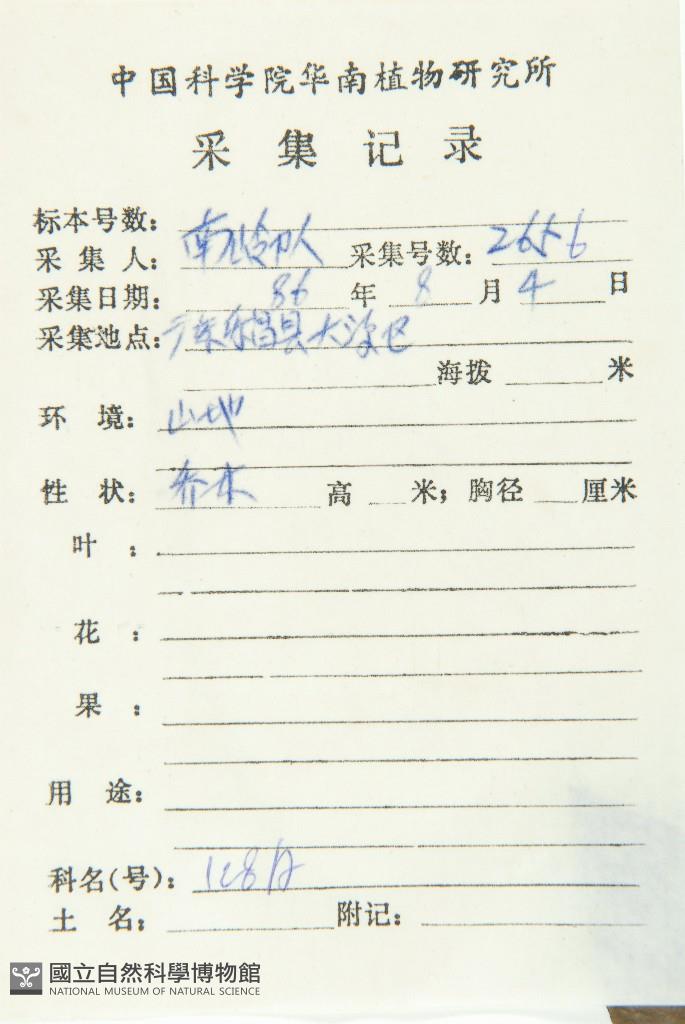 中国科学院华南植物研究所
采集记录
标本号数:
采集人: 南岭队 采集号数: 2656
采集日期: 86 年 8 月 4 日
采集地点: 广东乐昌县大
海拨 米
环境: 山地
性状: 乔木 高 米; 胸径 厘米
叶:
花:
果:
用途:
科名(号): 128A
土名: 附记:
國立自然科學博物館
NATIONAL MUSEUM OF NATURAL SCIENCE